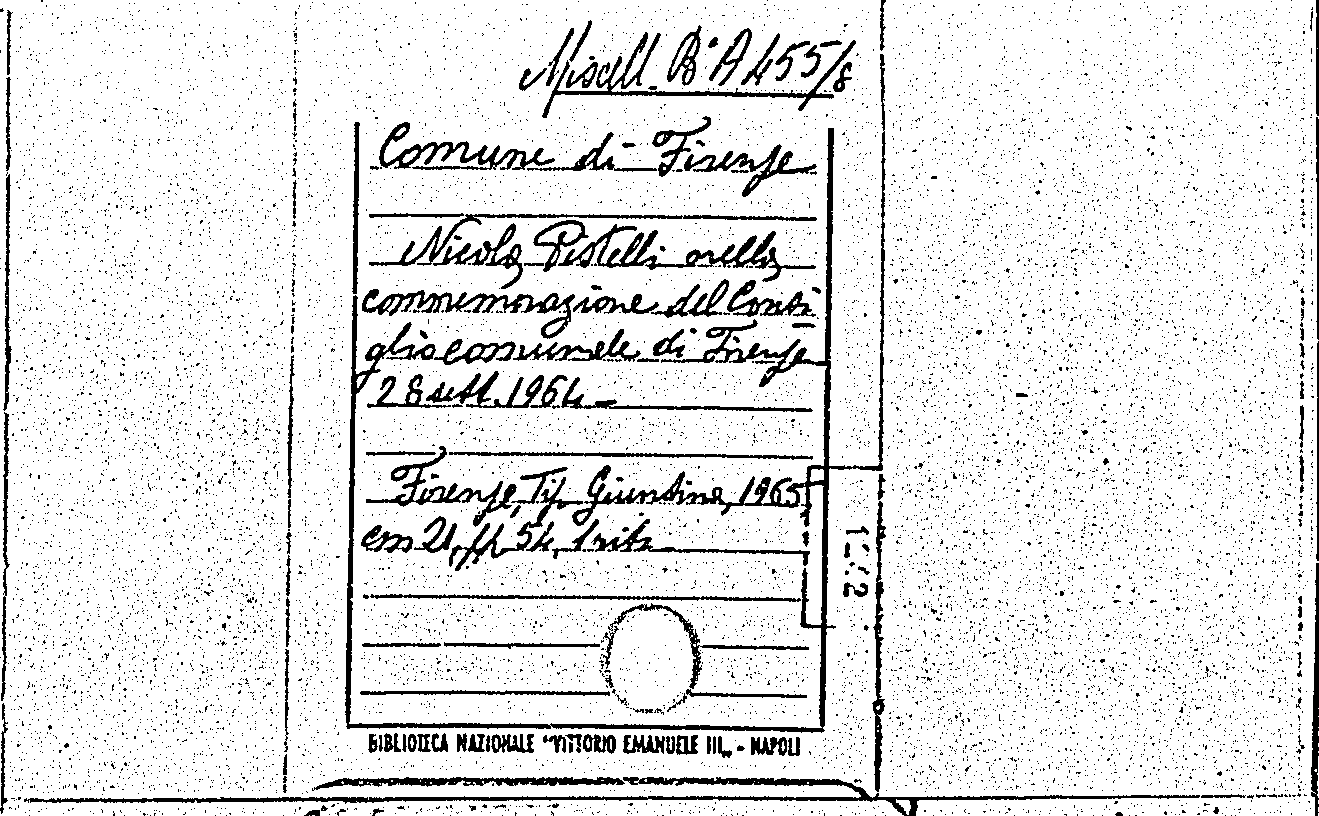 Miscell. B° A 455/8
Comune di Firenze
Nicola Pistelli nella
commemorazione del Consi
glio comunale di Firenze
28 sett. 1964 -
Firenze, Tip. Giuntina, 1965
cm 21, pp. 54, 1 ritr.
BIBLIOTECA NAZIONALE "VITTORIO EMANUELE III„ - NAPOLI